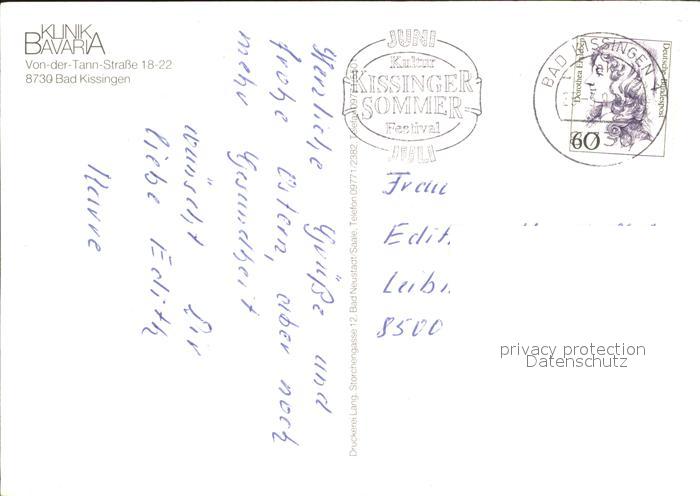 KLINIK
BAVARIA
Von-der-Tann-Straße 18-22
8730 Bad Kissingen
Herzliche Grüße und
frohe Ostern, aber noch
mehr Gesundheit
wünscht Dir
liebe Edith
Druckerei Lang, Storchengasse 12, Bad Neustadt/Saale, Telefon 09771/2382, Telefax 09771/
JUNI
Kultur
KISSINGER
SOMMER
Festival
JULI
BAD KISSINGEN
Deutsche Bundespost
Dorothea Erxleben
60
Frau
Edit
Leibi
8500
privacy protection
Datenschutz